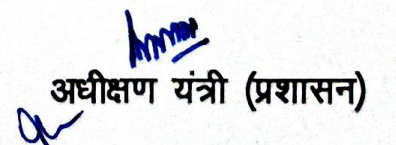 अधीक्षण यंत्री (प्रशासन)